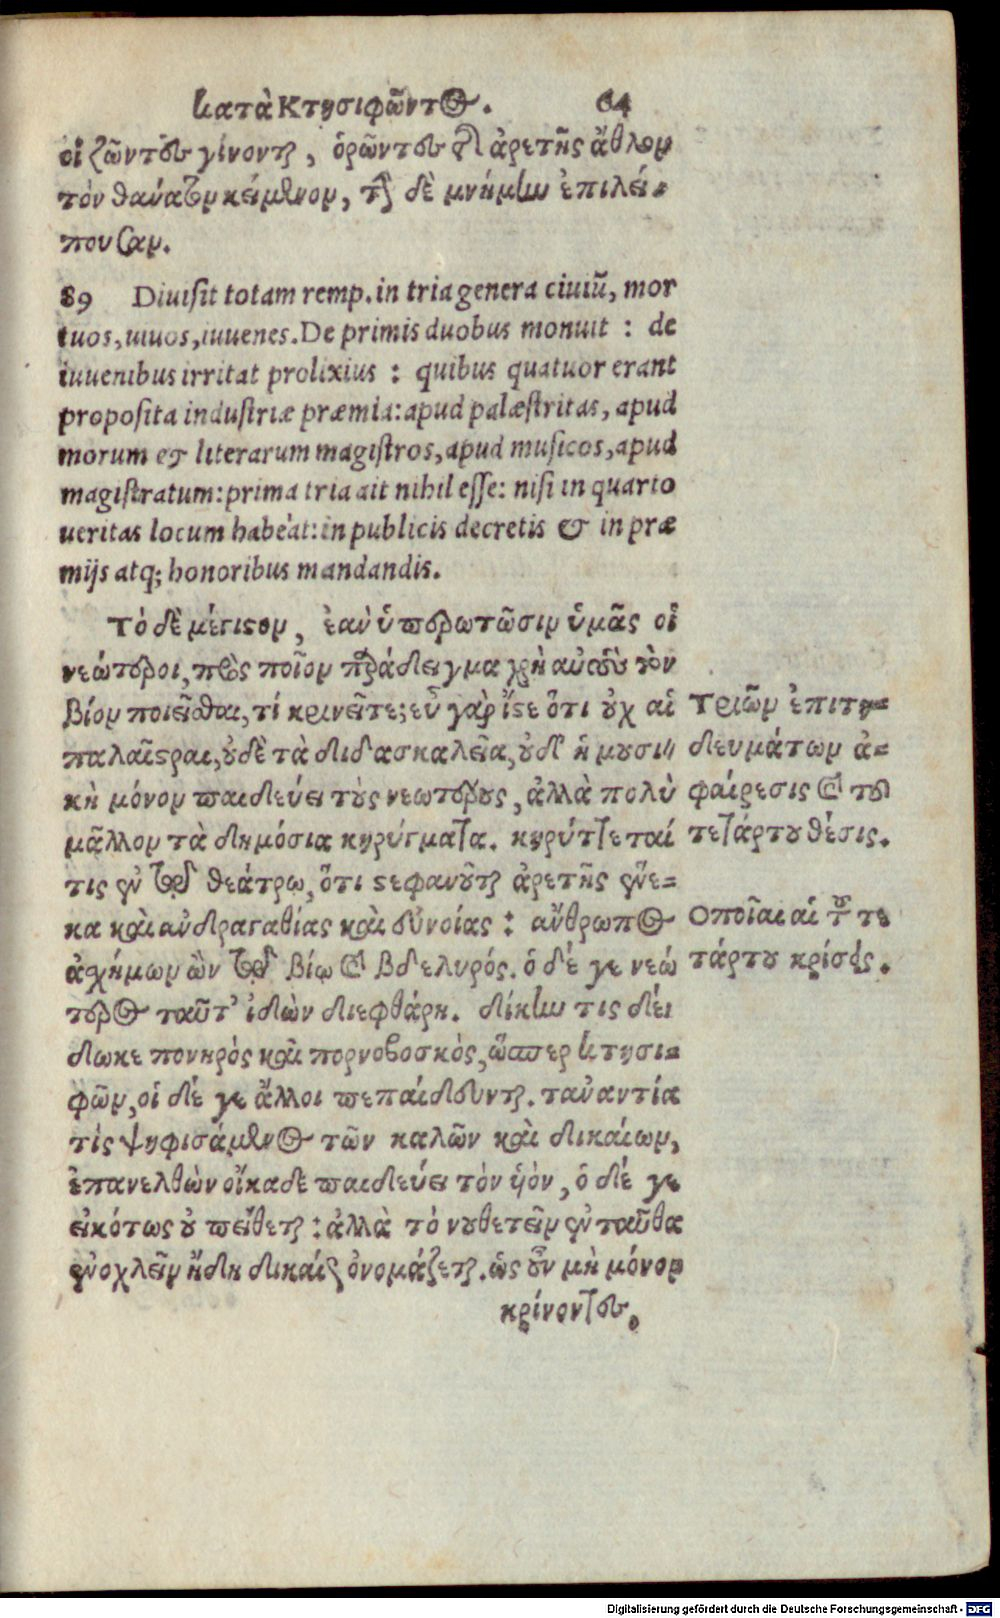 Κατὰ Κτησιφῶντος. 64
οἱ ζῶντες γίνονται, ὁρῶντες τῆς ἀρετῆς ἆθλον
τὸν θάνατον κείμενον, τὴν δὲ μνήμην ἐπιλεί-
πουσαν.
89 Diuisit totam remp. in tria genera ciuiũ, mor
tuos, uiuos, iuuenes. De primis duobus monuit : de
iuuenibus irritat prolixius : quibus quatuor erant
proposita industriæ præmia: apud palæstritas, apud
morum & literarum magistros, apud musicos, apud
magistratum: prima tria ait nihil esse: nisi in quarto
ueritas locum habeat: in publicis decretis & in præ
mijs atq; honoribus mandandis.
Τὸ δὲ μέγιστον, ἐὰν ὑπερωτῶσιν ὑμᾶς οἱ
νεώτεροι, πρὸς ποῖον παράδειγμα χρὴ αὐτοὺς τὸν
βίον ποιεῖσθαι, τί κρινεῖτε; εὖ γὰρ ἴστε ὅτι οὐχ αἱ
παλαῖστραι, οὐδὲ τὰ διδασκαλεῖα, οὐδ' ἡ μουσι
κὴ μόνον παιδεύει τοὺς νεωτέρους, ἀλλὰ πολὺ
μᾶλλον τὰ δημόσια κηρύγματα. κηρύττεταί
τις ἐν τῷ θεάτρῳ, ὅτι στεφανοῦται ἀρετῆς ἕνε-
κα καὶ ἀνδραγαθίας καὶ εὐνοίας : ἄνθρωπος
ἀσχήμων ὢν τῷ βίῳ καὶ βδελυρός. ὁ δέ γε νεώ
τερος ταῦτ' ἰδὼν διεφθάρη. δίκην τις δέ
δωκε πονηρὸς καὶ πορνοβοσκὸς, ὥσπερ Κτησι-
φῶν, οἱ δέ γε ἄλλοι πεπαίδευνται. τἀναντία
τίς ψηφισάμενος τῶν καλῶν καὶ δικαίων,
ἐπανελθὼν οἴκαδε παιδεύει τὸν ὑὸν, ὁ δέ γε
εἰκότως οὐ πείθεται : ἀλλὰ τὸ νουθετεῖν ἐνταῦθα
ἐνοχλεῖν ἤδη δικαίως ὀνομάζεται. ὡς οὖν μὴ μόνον
κρίνοντες,
Τριῶν ἐπιτη-
δευμάτων ἀ-
φαίρεσις καὶ τοῦ
τετάρτου θέσις.
Ὁποῖαι αἱ τοῦ τε
τάρτου κρίσεις.
Digitalisierung gefördert durch die Deutsche Forschungsgemeinschaft - DFG